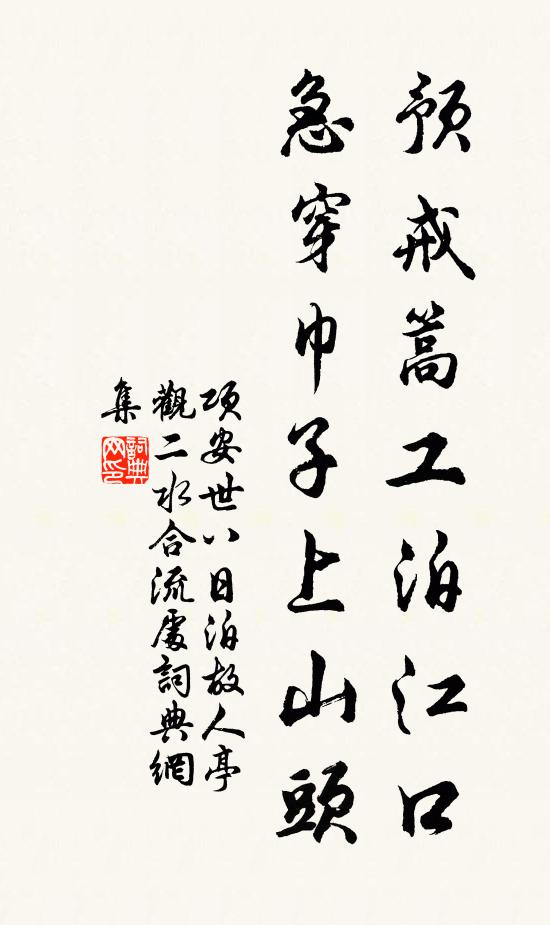 預戒蒿工泊江口
急穿巾子上山頭
項安世八日泊故人亭
觀二水合流處詞典網
集
詞典網印